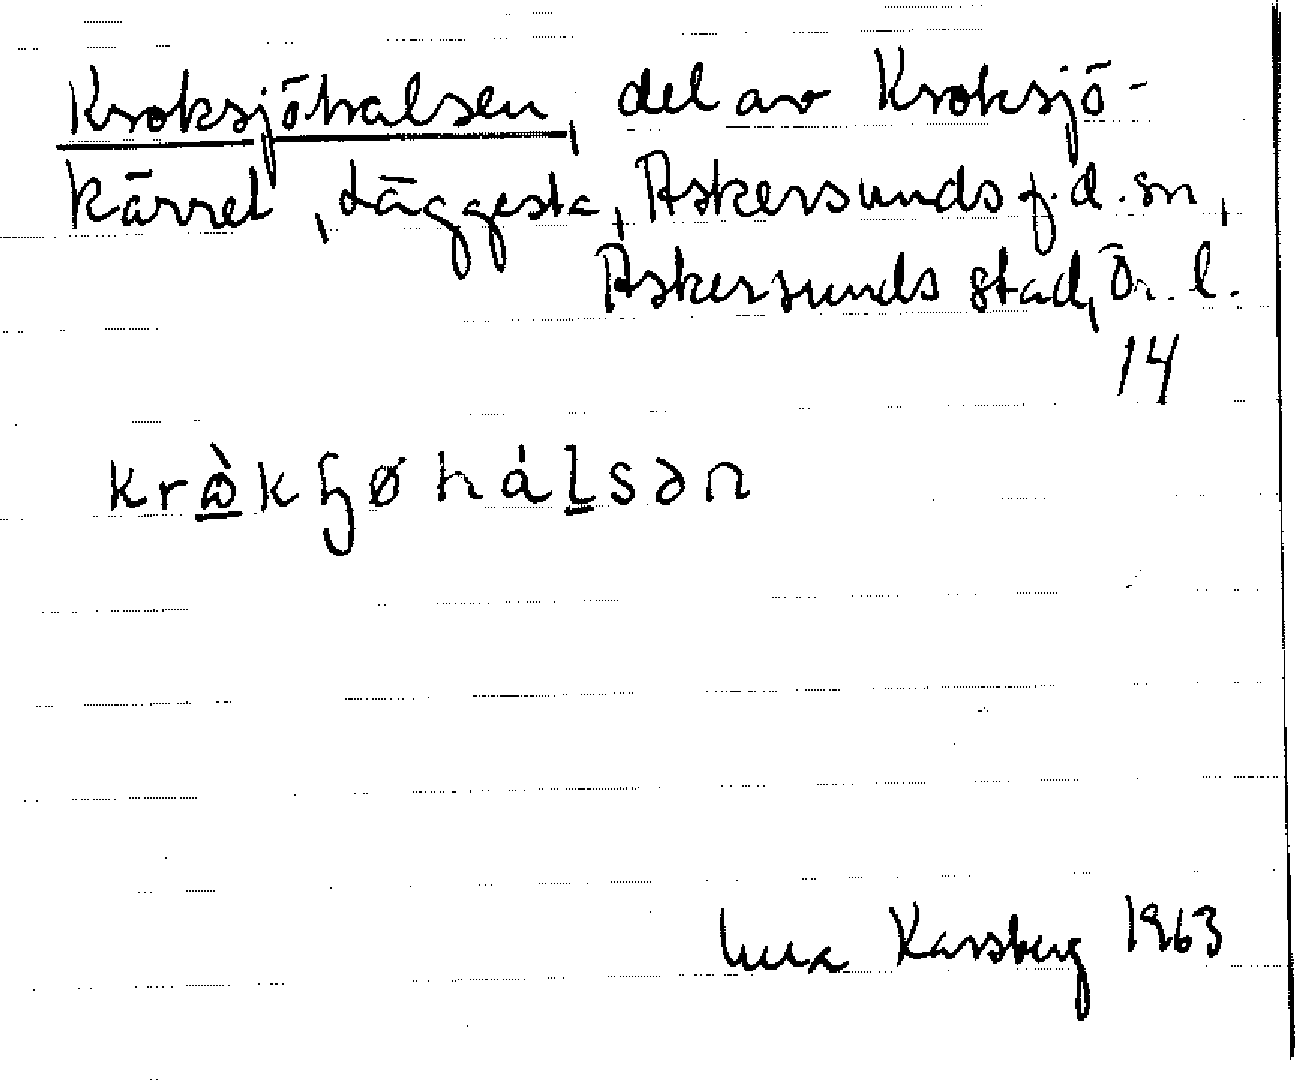 Kroksjöhalsen, del av Kroksjö-
kärret, Läggesta, Askersunds f.d. sn,
Askersunds stad, Ör. l.
14
Karsberg 1963